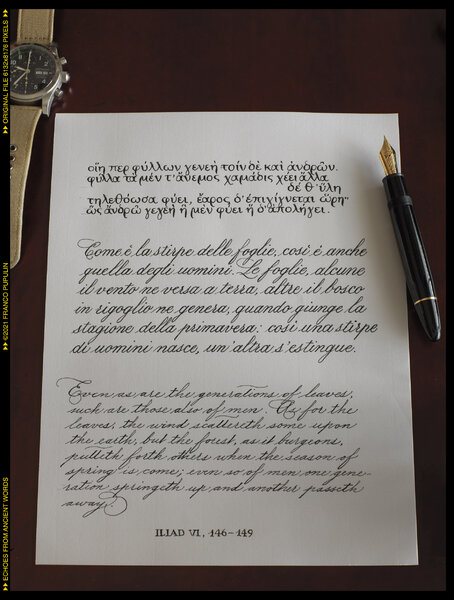 οἵη περ φύλλων γενεὴ τοίη δὲ καὶ ἀνδρῶν.
φύλλα τὰ μέν τ' ἄνεμος χαμάδις χέει ἄλλα
δέ θ' ὕλη
τηλεθόωσα φύει, ἔαρος δ' ἐπιγίγνεται ὥρη·
ὣς ἀνδρῶ γεγεὴ ἣ μὲν φύει ἣ δ' ἀπολήγει.
Come è la stirpe delle foglie, così è anche
quella degli uomini. Le foglie, alcune
il vento ne versa a terra, altre il bosco
in rigoglio ne genera, quando giunge la
stagione della primavera: così una stirpe
di uomini nasce, un'altra s'estingue.
Even as are the generations of leaves,
such are those also of men. As for the
leaves, the wind scattereth some upon
the earth, but the forest, as it burgeons,
putteth forth others when the season of
spring is come; even so of men one gene-
ration springeth up and another passeth
away.
ILIAD VI, 146-149
ORIGINAL FILE 6132x8176 PIXELS
©2021 FRANCO PUPULIN
ECHOES FROM ANCIENT WORDS